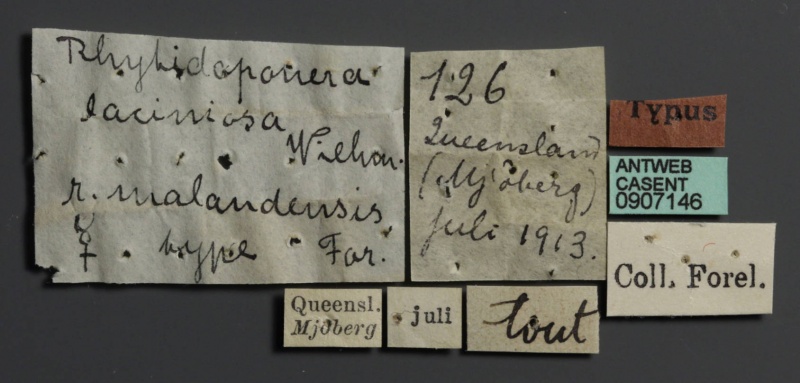 Rhytidoponera
laciniosa
Viehm.
r. malandensis
☿ type For.
126
Queensland
(Mjöberg)
juli 1913.
Typus
ANTWEB
CASENT
0907146
Coll. Forel.
Queensl.
Mjöberg
juli
tout